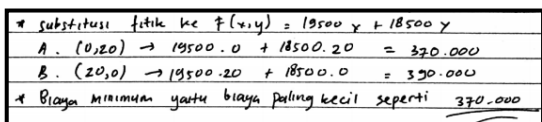 * Substitusi titik ke f(x,y) = 19500 x + 18500 y
A. (0,20) → 19500.0 + 18500.20 = 370.000
B. (20,0) → 19500.20 + 18500.0 = 390.000
* Biaya minimum yaitu biaya paling kecil seperti 370.000